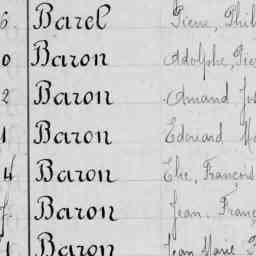 6 Barel Pierre, Phil
0 Baron Adolphe, Pie
2 Baron Amand Jos
1 Baron Edouard
4 Baron Elie, François
Baron Jean, Franç
1 Baron Jean Marie